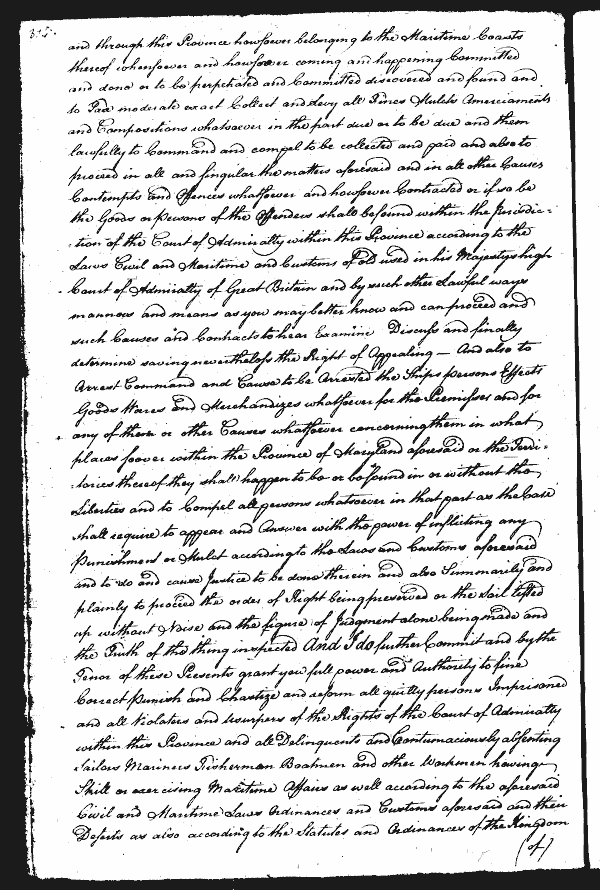 and through this Province howsoever belonging to the Maritime Coasts
thereof whensoever and howsoever coming an happening Committed
and done or to be perpetrated and Committed discovered and found and
to Tax moderate exact Collect and Levy all Fines Mulcts Amerciaments
and Compositions whatsoever in the part due or to be due and them
lawfully to Command and compel to be collected and paid and also to
proceed in all and singular the matters aforesaid and in all other Causes
Contempts and Offences whatsoever and howsoever Contracted or if so be
the Goods or persons of the Offenders shall be found within the Jurisdic=
=tion of the Court of Admiralty within this Province according to the
Laws Civil and Maritime and Customs of old used in his Majestys high
Court of Admiralty of Great Britain and by such other Lawful ways
manners and means as you may better know and can proceed and
such Causes and Contracts to hear Examine Discuss and finally
determine saving nevertheless the Right of Appealing — And also to
Arrest Command and Cause to be Arrested the Ships persons Effects
Goods Wares and Merchandizes whatsoever for the Premisses and for
any of them or other Causes whatsoever concerning them in what
places soever within the Province of Maryland aforesaid or the Terri=
=tories thereof they shall happen to be or be found in or without the
Liberties and to Compel all persons whatsoever in that part as the Case
shall require to appear and Answer with the power of inflicting any
Punishment or Mulct according to the Laws and Customs aforesaid
and to do and cause Justice to be done therein and also Summarily and
plainly to proceed the order of Right being preserved or the Suit lifted
up without Noise and the figure of Judgment alone being made and
the Truth of the thing inspected And I do further Commit and by the
Tenor of these Presents grant you full power and Authority to fine
Correct Punish and Chastize and reform all guilty persons Imprisoned
and all Violaters and Usurpers of the Rights of the Court of Admiralty
within this Province and all Delinquents and Contumaciously absenting
Sailors Mariners Fisherman Boatmen and other Workmen having
Skill or exercising Maritime Affairs as well according to the aforesaid
Civil and Maritime Laws Ordinances and Customs aforesaid and their
Defects as also according to the Statutes and Ordinances of the Kingdom
(of)